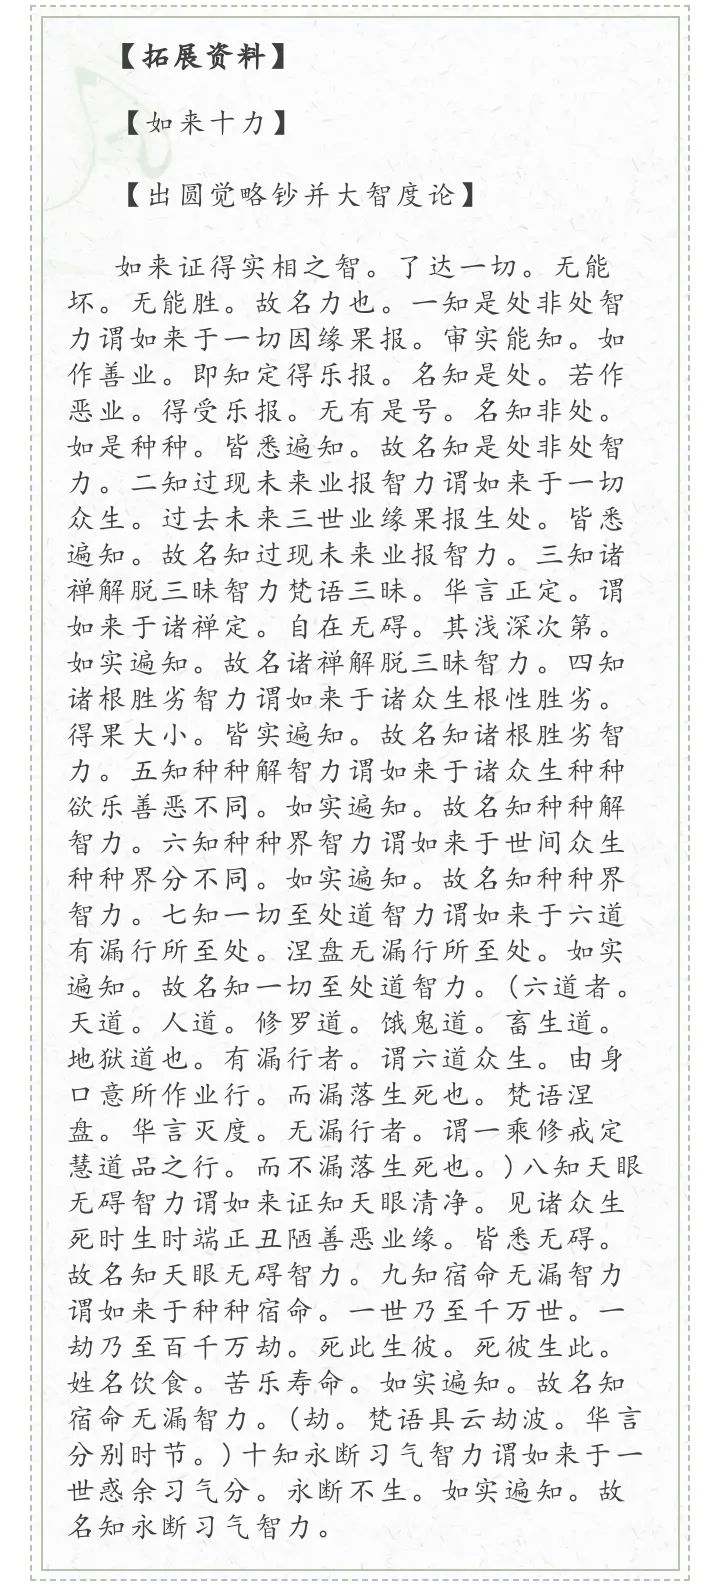 【拓展资料】
【如来十力】
【出圆觉略钞并大智度论】
如来证得实相之智。了达一切。无能
坏。无能胜。故名力也。一知是处非处智
力谓如来于一切因缘果报。审实能知。如
作善业。即知定得乐报。名知是处。若作
恶业。得受乐报。无有是号。名知非处。
如是种种。皆悉遍知。故名知是处非处智
力。二知过现未来业报智力谓如来于一切
众生。过去未来三世业缘果报生处。皆悉
遍知。故名知过现未来业报智力。三知诸
禅解脱三昧智力梵语三昧。华言正定。谓
如来于诸禅定。自在无碍。其浅深次第。
如实遍知。故名诸禅解脱三昧智力。四知
诸根胜劣智力谓如来于诸众生根性胜劣。
得果大小。皆实遍知。故名知诸根胜劣智
力。五知种种解智力谓如来于诸众生种种
欲乐善恶不同。如实遍知。故名知种种解
智力。六知种种界智力谓如来于世间众生
种种界分不同。如实遍知。故名知种种界
智力。七知一切至处道智力谓如来于六道
有漏行所至处。涅盘无漏行所至处。如实
遍知。故名知一切至处道智力。(六道者。
天道。人道。修罗道。饿鬼道。畜生道。
地狱道也。有漏行者。谓六道众生。由身
口意所作业行。而漏落生死也。梵语涅
盘。华言灭度。无漏行者。谓一乘修戒定
慧道品之行。而不漏落生死也。)八知天眼
无碍智力谓如来证知天眼清净。见诸众生
死时生时端正丑陋善恶业缘。皆悉无碍。
故名知天眼无碍智力。九知宿命无漏智力
谓如来于种种宿命。一世乃至千万世。一
劫乃至百千万劫。死此生彼。死彼生此。
姓名饮食。苦乐寿命。如实遍知。故名知
宿命无漏智力。(劫。梵语具云劫波。华言
分别时节。)十知永断习气智力谓如来于一
世惑余习气分。永断不生。如实遍知。故
名知永断习气智力。